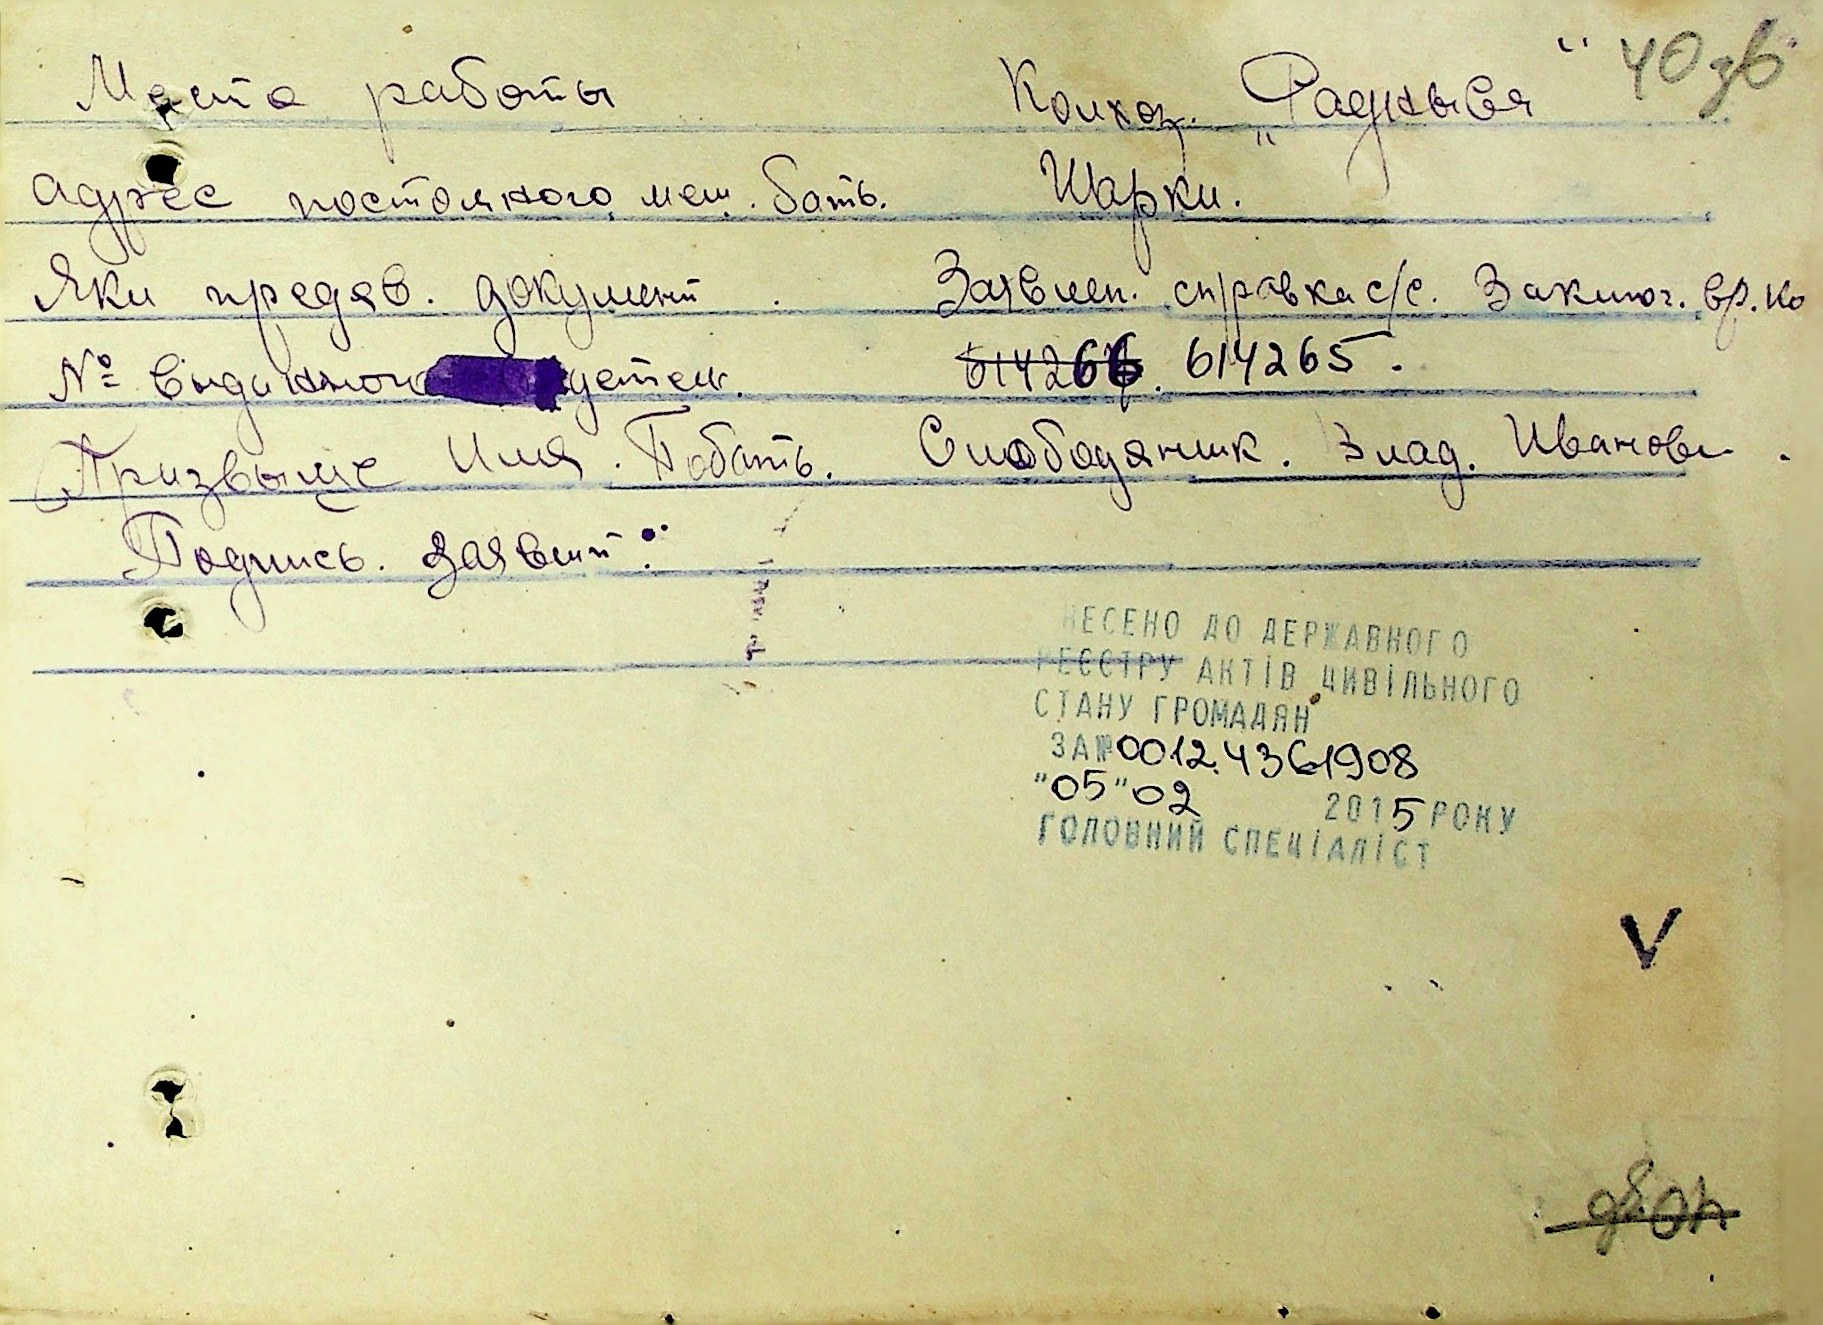 40 зв
Места работы Колхоз. „Радяныея"
адрес постоянного меш. бать. Шарки.
Яки предяв. документ. Заявлен. справка с/с. Заключ. вр. ко
№ видинного детел. 614266. 614265.
Призвыще Имя. Побать. Слободяник. Влад. Иванови.
Подпись. заявит:
НЕСЕНО ДО ДЕРЖАВНОГО
РЕЄСТРУ АКТІВ ЦИВІЛЬНОГО
СТАНУ ГРОМАДЯН
ЗА № 00124361908
"05" 02 2015 РОКУ
ГОЛОВНИЙ СПЕЦІАЛІСТ
V